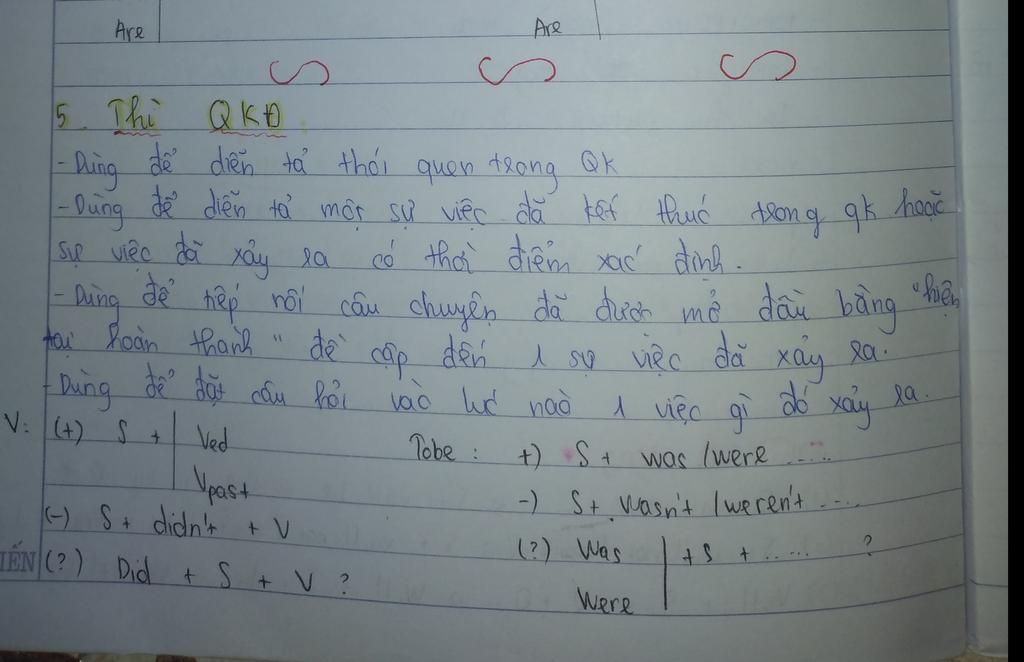 Are Are
5. Thì QKĐ
- Dùng để diễn tả thói quen trong QK
- Dùng để diễn tả một sự việc đã kết thúc trong qk hoặc
sự việc đã xảy ra có thời điểm xác định.
- Dùng để tiếp nối câu chuyện đã được mở đầu bằng "hiện
tại hoàn thành" đề cập đến 1 sự việc đã xảy ra.
- Dùng để đặt câu hỏi vào lúc nào 1 việc gì đó xảy ra.
V: (+) S + | Ved Tobe : +) S + was / were .....
Vpast
-) S + wasn't / weren't ....
(-) S + didn't + V
(?) Was | + S + ..... ?
IẾN (?) Did + S + V ?
Were